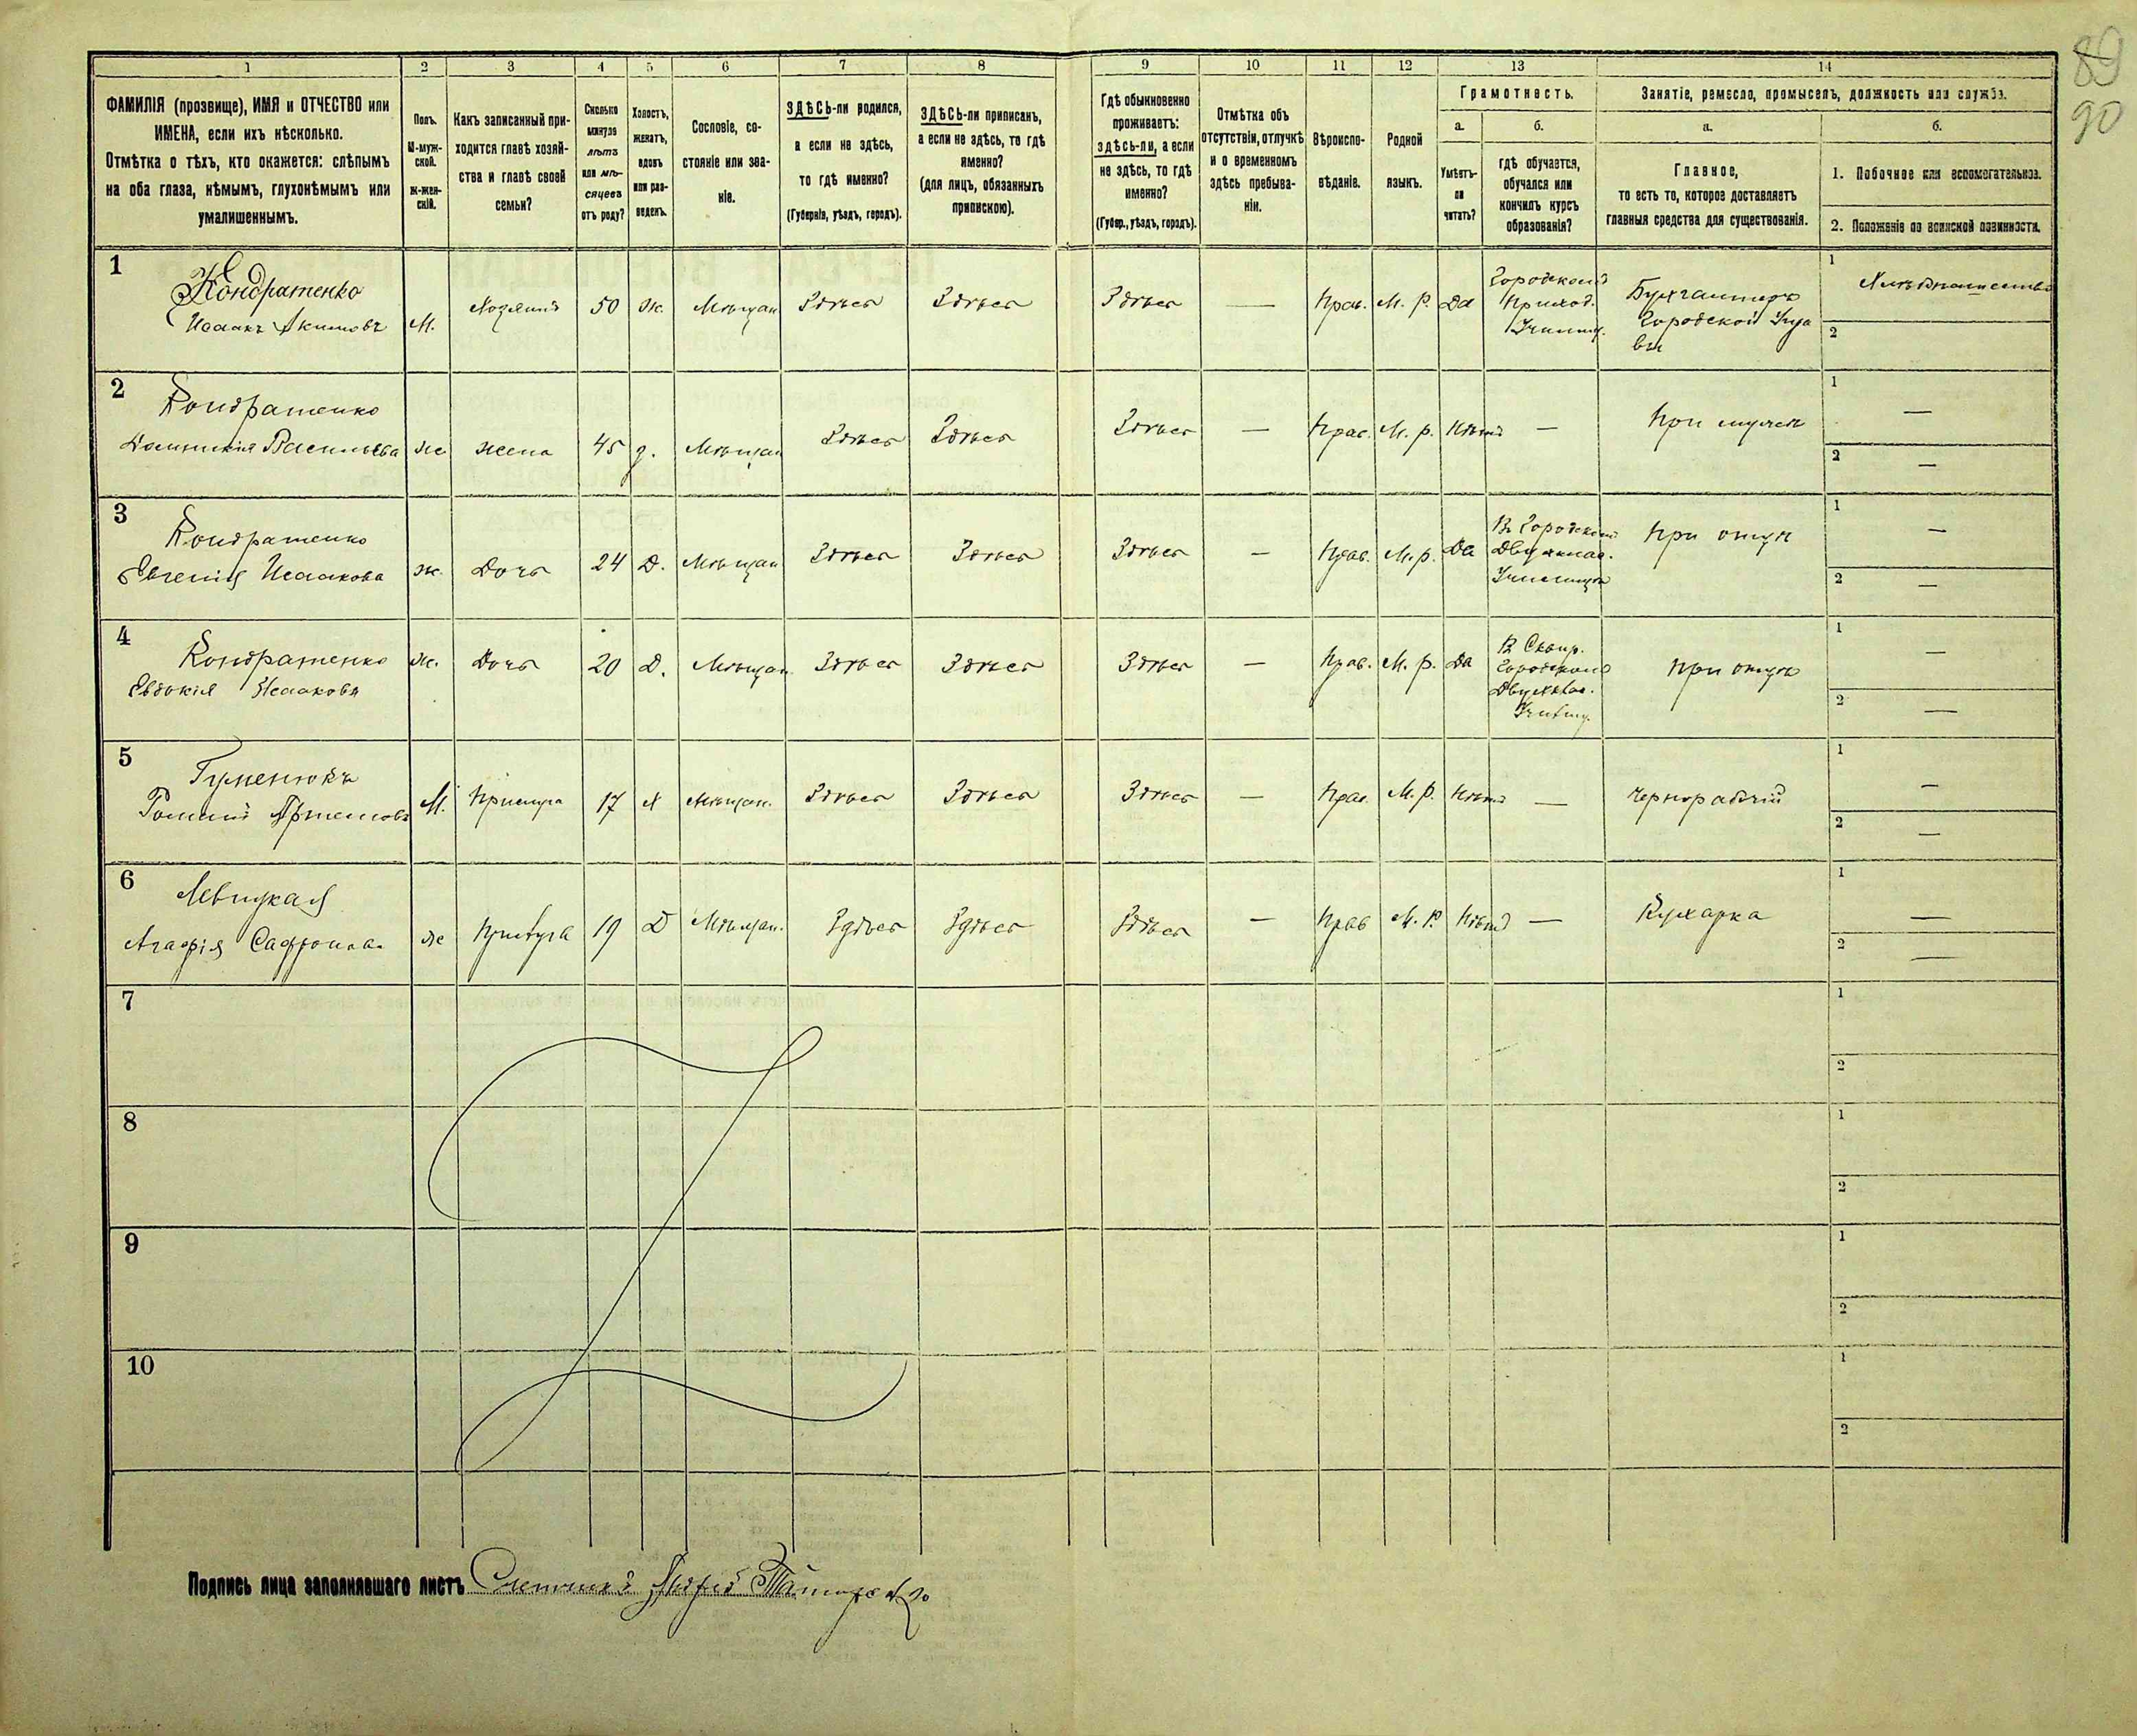 89
90
1 2 3 4 5 6 7 8 9 10 11 12 13 14
ФАМИЛІЯ (прозвище), ИМЯ и ОТЧЕСТВО или
ИМЕНА, если ихъ нѣсколько.
Отмѣтка о тѣхъ, кто окажется: слѣпымъ
на оба глаза, нѣмымъ, глухонѣмымъ или
умалишеннымъ.
Полъ.
М-муж-
ской.
Ж-жен-
скій.
Какъ записанный при-
ходится главѣ хозяй-
ства и главѣ своей
семьи?
Сколько
минуло
лѣтъ
или мѣ-
сяцевъ
отъ роду?
Холостъ,
женатъ,
вдовъ
или раз-
веденъ.
Сословіе, со-
стояніе или зва-
ніе.
ЗДѢСЬ-ли родился,
а если не здѣсь,
то гдѣ именно?
(Губернія, уѣздъ, городъ).
ЗДѢСЬ-ли приписанъ,
а если не здѣсь, то гдѣ
именно?
(для лицъ, обязанныхъ
припискою).
Гдѣ обыкновенно
проживаетъ:
здѣсь-ли, а если
не здѣсь, то гдѣ
именно?
(Губер., уѣздъ, городъ).
Отмѣтка объ
отсутствіи, отлучкѣ
и о временномъ
здѣсь пребыва-
ніи.
Вѣроиспо-
вѣданіе.
Родной
языкъ.
Грамотность.
а.
Умѣетъ-
ли
читать?
б.
гдѣ обучается,
обучался или
кончилъ курсъ
образованія?
Занятіе, ремесло, промыселъ, должность или служба.
а.
Главное,
то есть то, которое доставляетъ
главныя средства для существованія.
б.
1. Побочное или вспомогательное.
2. Положеніе по воинской повинности.
1
Кондратенко
Исаакъ Акимовъ
М. Хозяинъ 50 Ж. Мѣщан Здѣсь Здѣсь Здѣсь — Прав. М. Р. Да
Городском
Приход.
Училищ.
Бухгалтеръ
Городской Упра
вы
1
2
2
Кондратенко
Васильева
Ж Жена 45 З. Мѣщан Здѣсь Здѣсь Здѣсь — Прав. М. р. Нѣтъ — При мужѣ
1 —
2 —
3
Кондратенко
Евгенія Исаакова
Ж. Дочь 24 Д. Мѣщан Здѣсь Здѣсь Здѣсь — Прав. М. р. Да
В Городском
Двухклас.
Училищѣ
При отцѣ
1 —
2 —
4
Кондратенко
Евдокія Исаакова
Ж. Дочь 20 Д. Мѣщан. Здѣсь Здѣсь Здѣсь — Прав. М. р. Да
В Сквир.
Городском
Двухклас.
Училищ.
при отцѣ
1 —
2 —
5
Гуменюкъ
Артемовъ
М. Прислуга 17 Х Мѣщан. Здѣсь Здѣсь Здѣсь — Прав. М. Р. Нѣтъ — Чернорабочій
1 —
2 —
6
Левицкая
Агафія Сафронова
Ж Прислуга 19 Д Мѣщан. Здѣсь Здѣсь Здѣсь — Прав М. Р. Нѣтъ — Кухарка
1 —
2 —
7
1
2
8
1
2
9
1
2
10
1
2
Подпись лица заполнявшаго листъ Счетчикъ